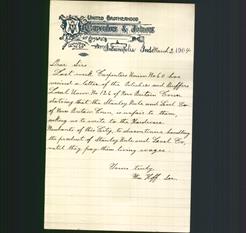 United Brotherhood
Carpenters & Joiners
of America
Indianapolis Ind March 2 1904
Dear Sirs
Last week Carpenters Union No 60 was
against a letter of the Polishers and Buffers
Local Union No 126 of New Britain Conn
stating that the Stanley Rule and Level Co
of New Britain Conn, is unfair to them,
asking us to write to the Hardware
Merchants of this City, to discontinue handling
the product of Stanley Rule and Level Co,
until they pay them living wages.
Yours truly